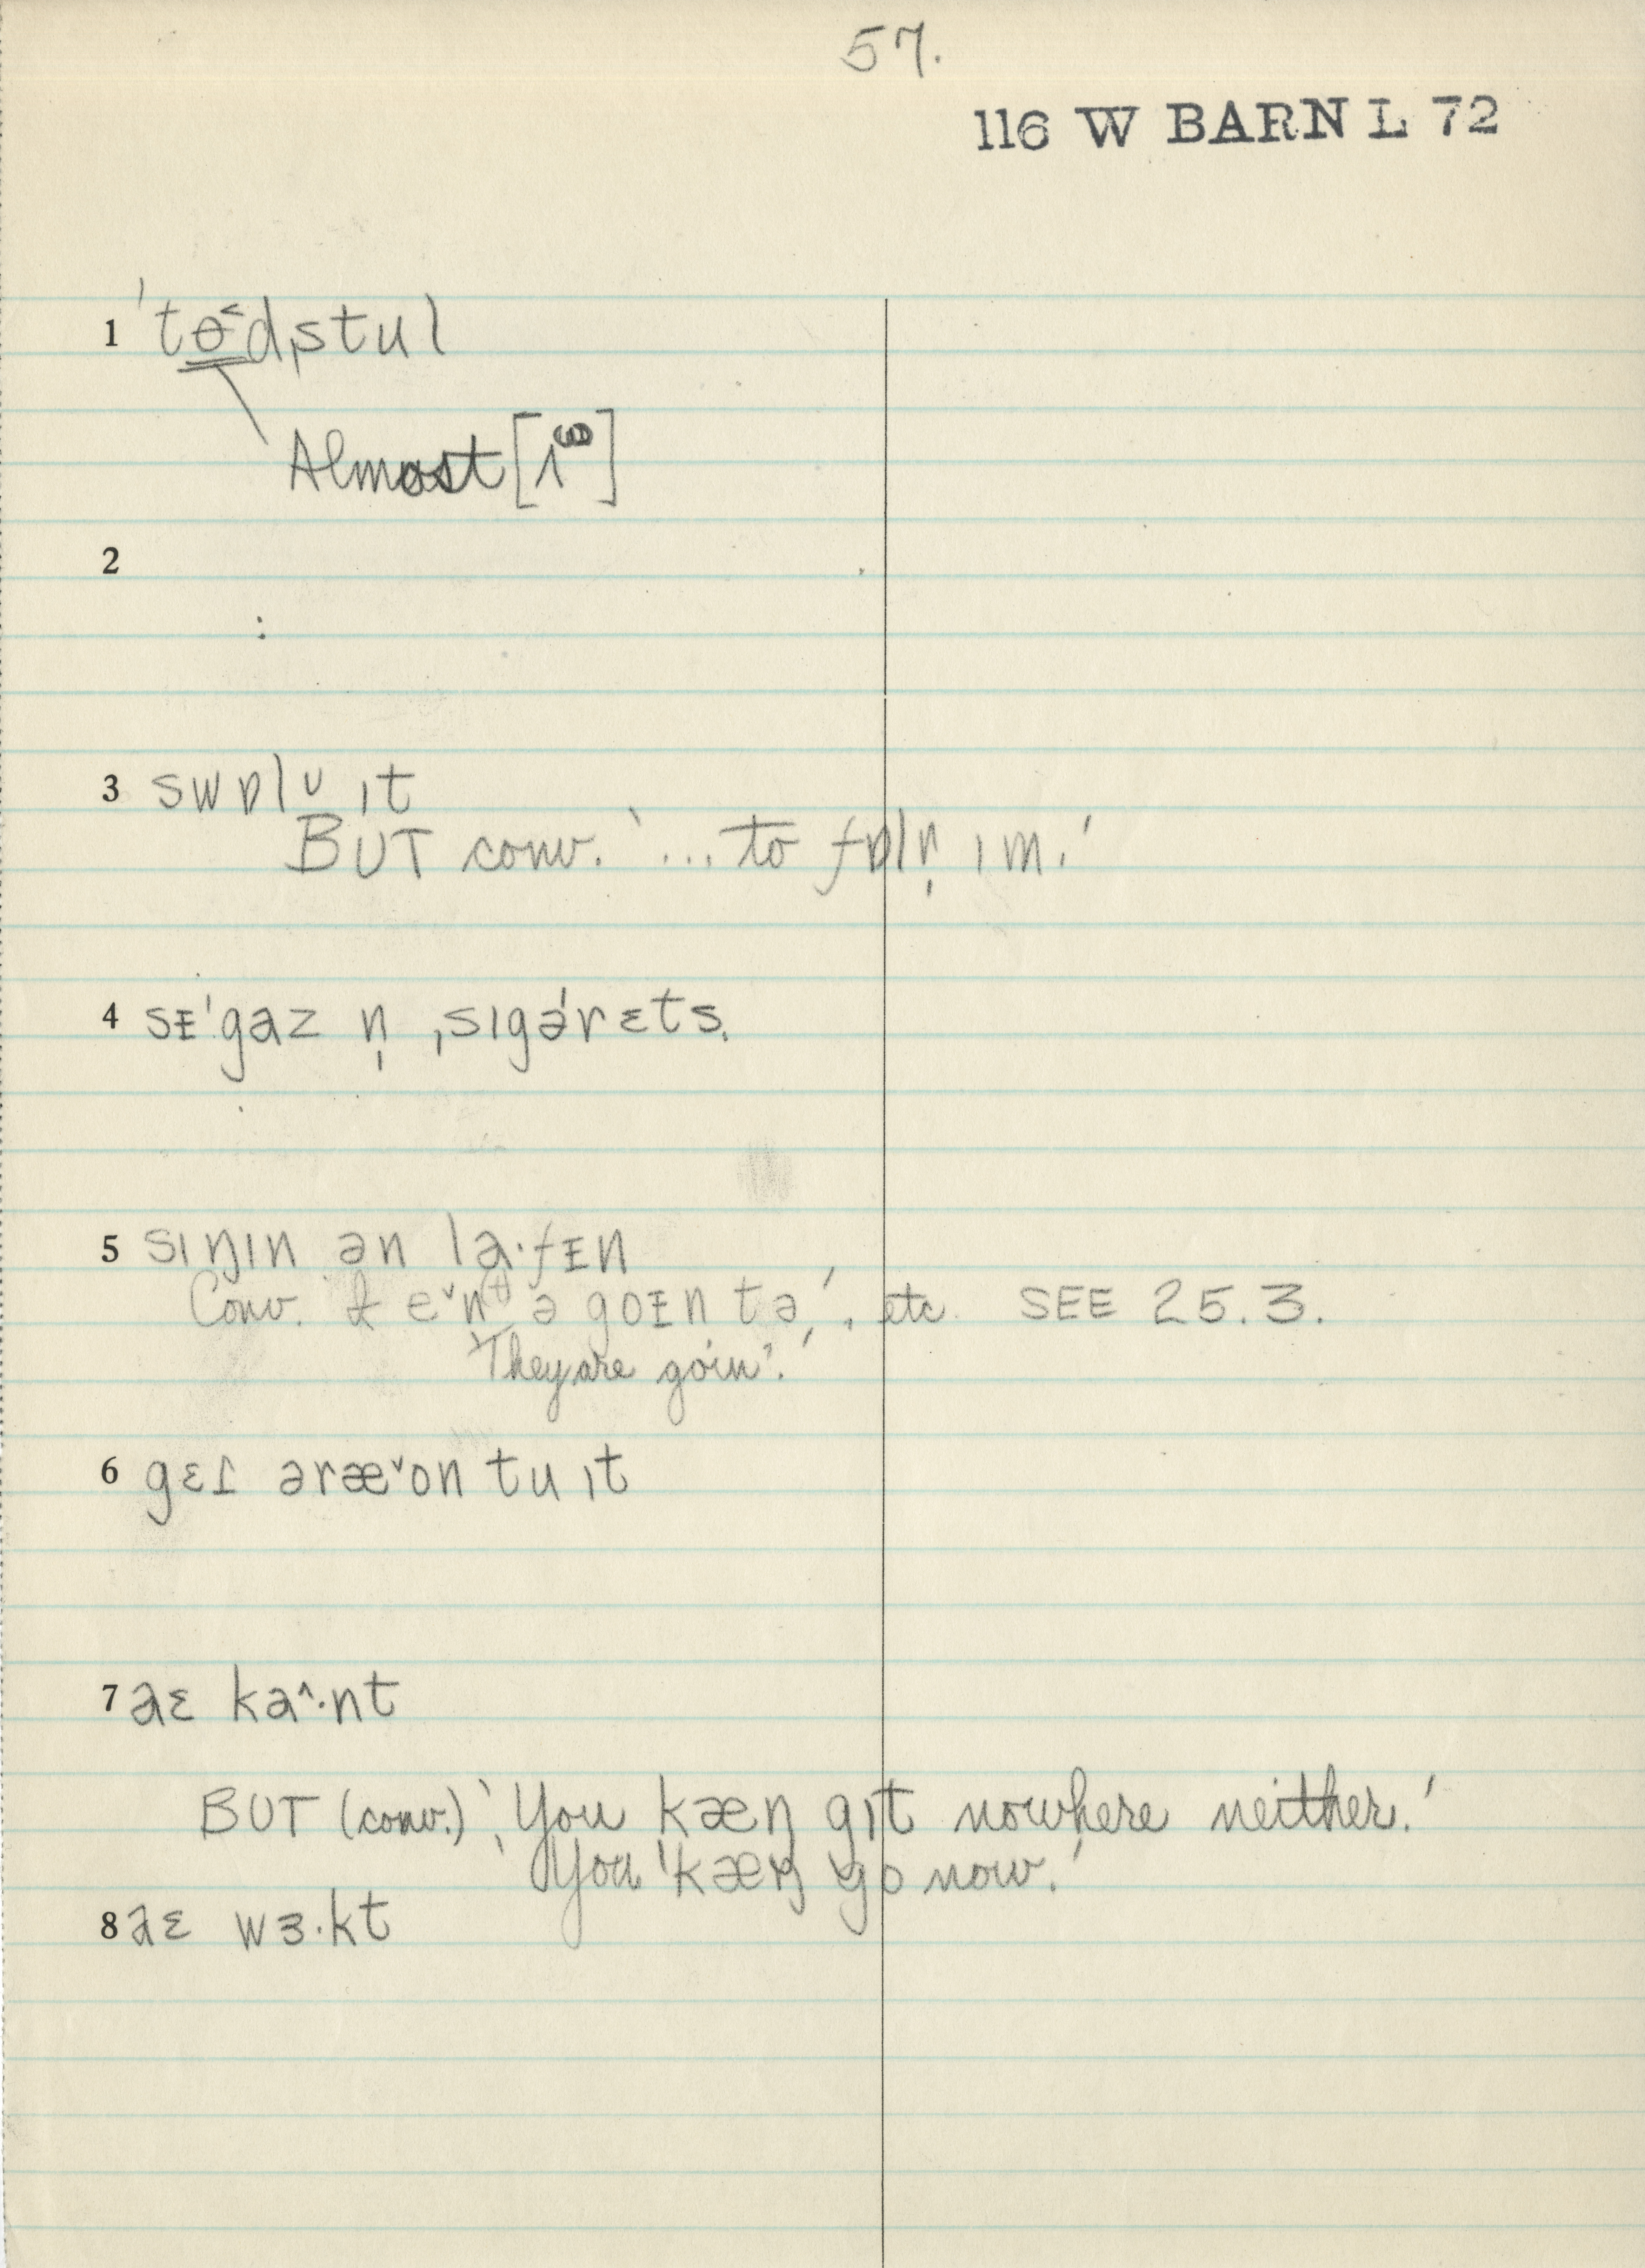 57.
116 W BARN L 72
1 ˈtɵ˂dˌstul
Almost [ɿᶭ]
2
3 swɒlʊ ɪt
BUT conv. '... to fɒlr̩ ɪm.'
4 sᵻˈgaz n̩ ˌsɪgəˈrɛts.
5 sɪŋɪn ən la·fᵻn
Conv. ə goᵻn tə,' etc. SEE 25.3.
'They are goin'.'
6 gɛt̬ əræ˅on tu ɪt
7 aɛ ka^·nt
BUT (conv.) 'You kæŋ gɪt nowhere neither.'
'You ˈkæŋ go now.'
8 aɛ wɜ·kt